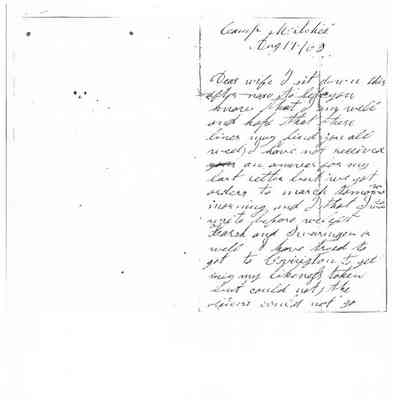 Camp Mitchel
Aug 17/63
Dear wife I sit down this
after noon to let you
know that I am well
and hope that these
lines may find you all
well I have not received
an answer for my
last letter but we got
orders to march
morning and I that I
write before we
and is
well I have tried to
got to Covington to get
my likeness taken
but could not the
could not go